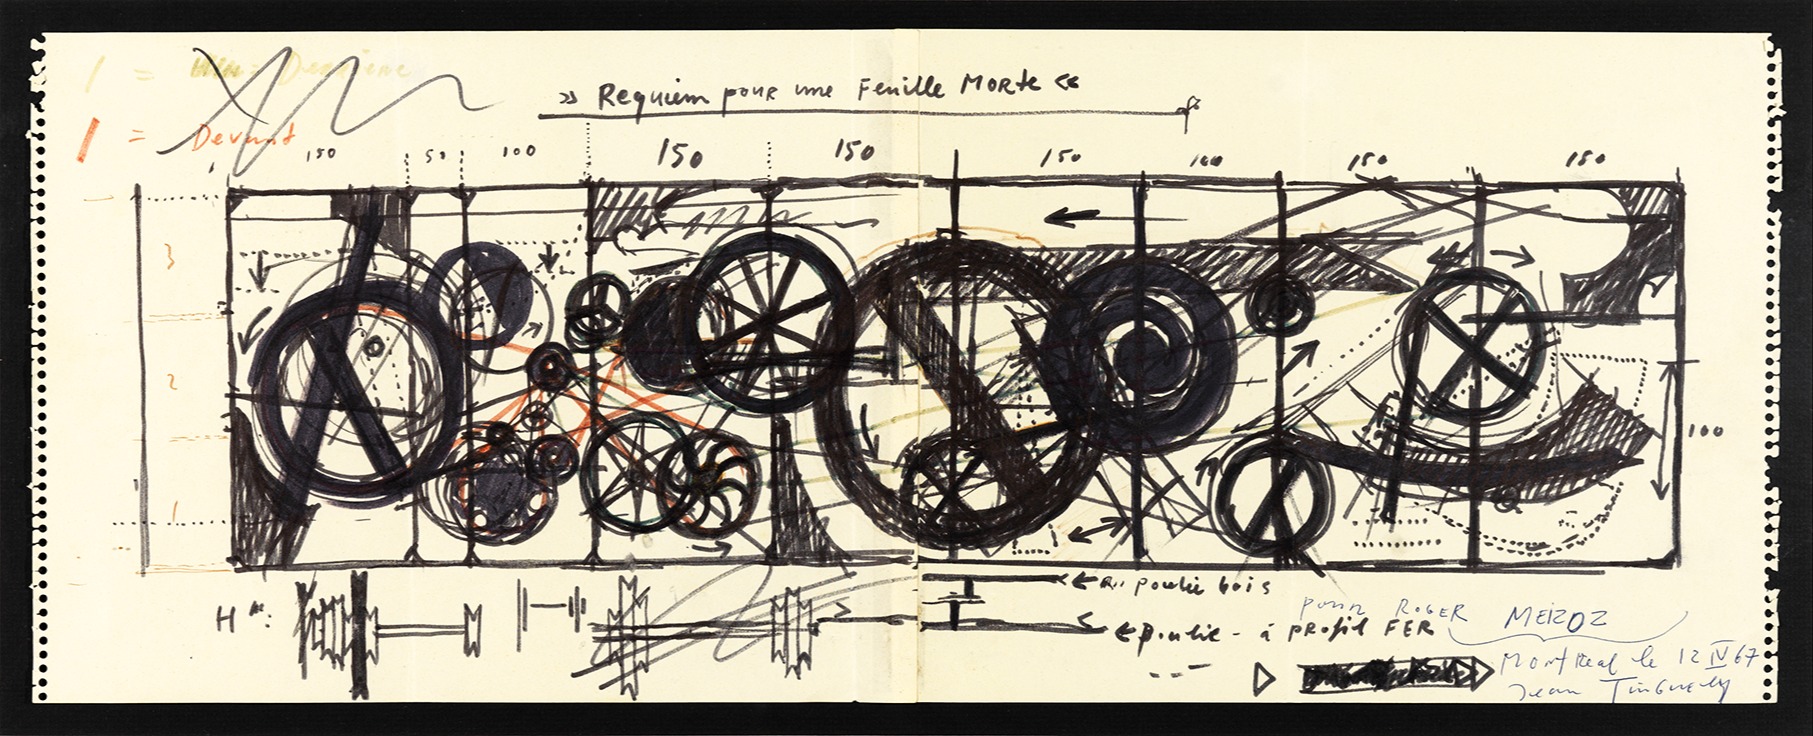 1 =
» Requiem pour une Feuille Morte «
1 = Devant
150 50 100 150 150 150 100 150 150
3
2
1
100
← poulie bois
← poulie - à profil FER
pour ROGER MEIZOZ
Montreal le 12 IV 67
Jean Tinguely